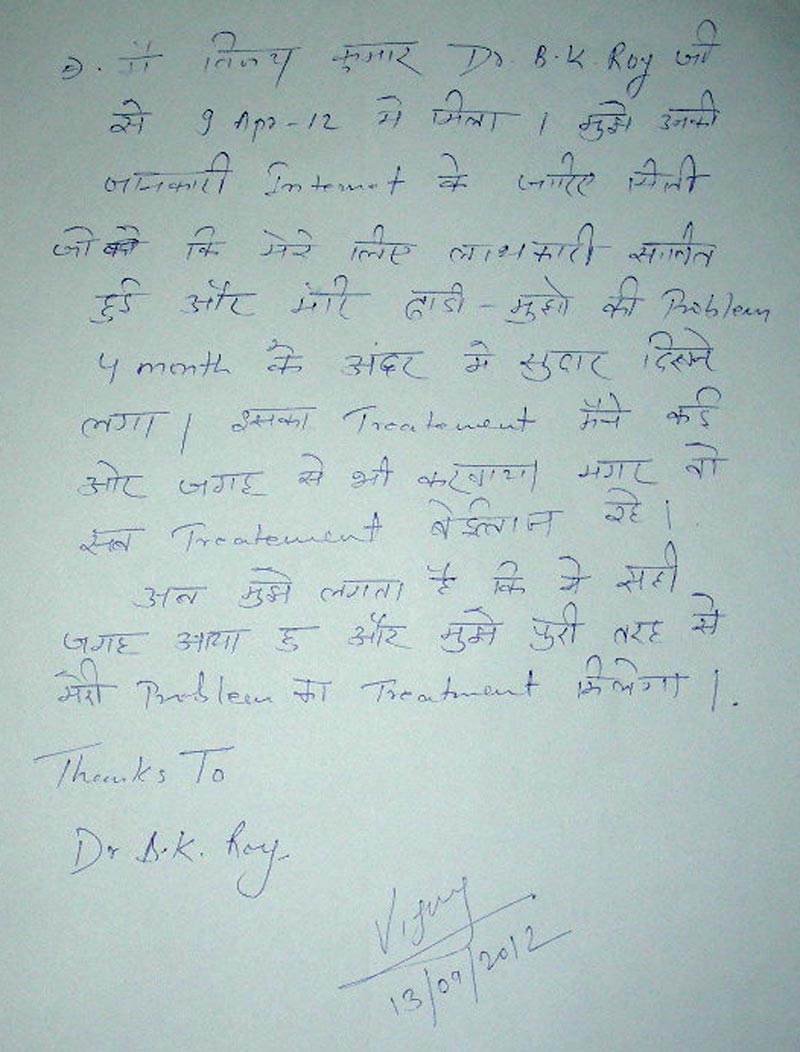 मैं विजय कुमार Dr. B.K. Roy जी
से 9 Apr-12 मे मिला । मुझे उनकी
जानकारी Internet के जरिए मिली
जो कि मेरे लिए लाभकारी साबित
हुई और मेरि दाडी - मुछो की Problem
4 month के अंदर मे सुदार दिखने
लगा । इसका Treatement मैने कई
ओर जगह से भी करवाया मगर वो
सब Treatement बेईलाज रहे ।
अब मुझे लगता है कि मे सही
जगह आया हु और मुझे पुरी तरह से
मेरी Problem का Treatment मिलेगा ।.
Thanks To
Dr B.K. Roy
Vijay
13/09/2012